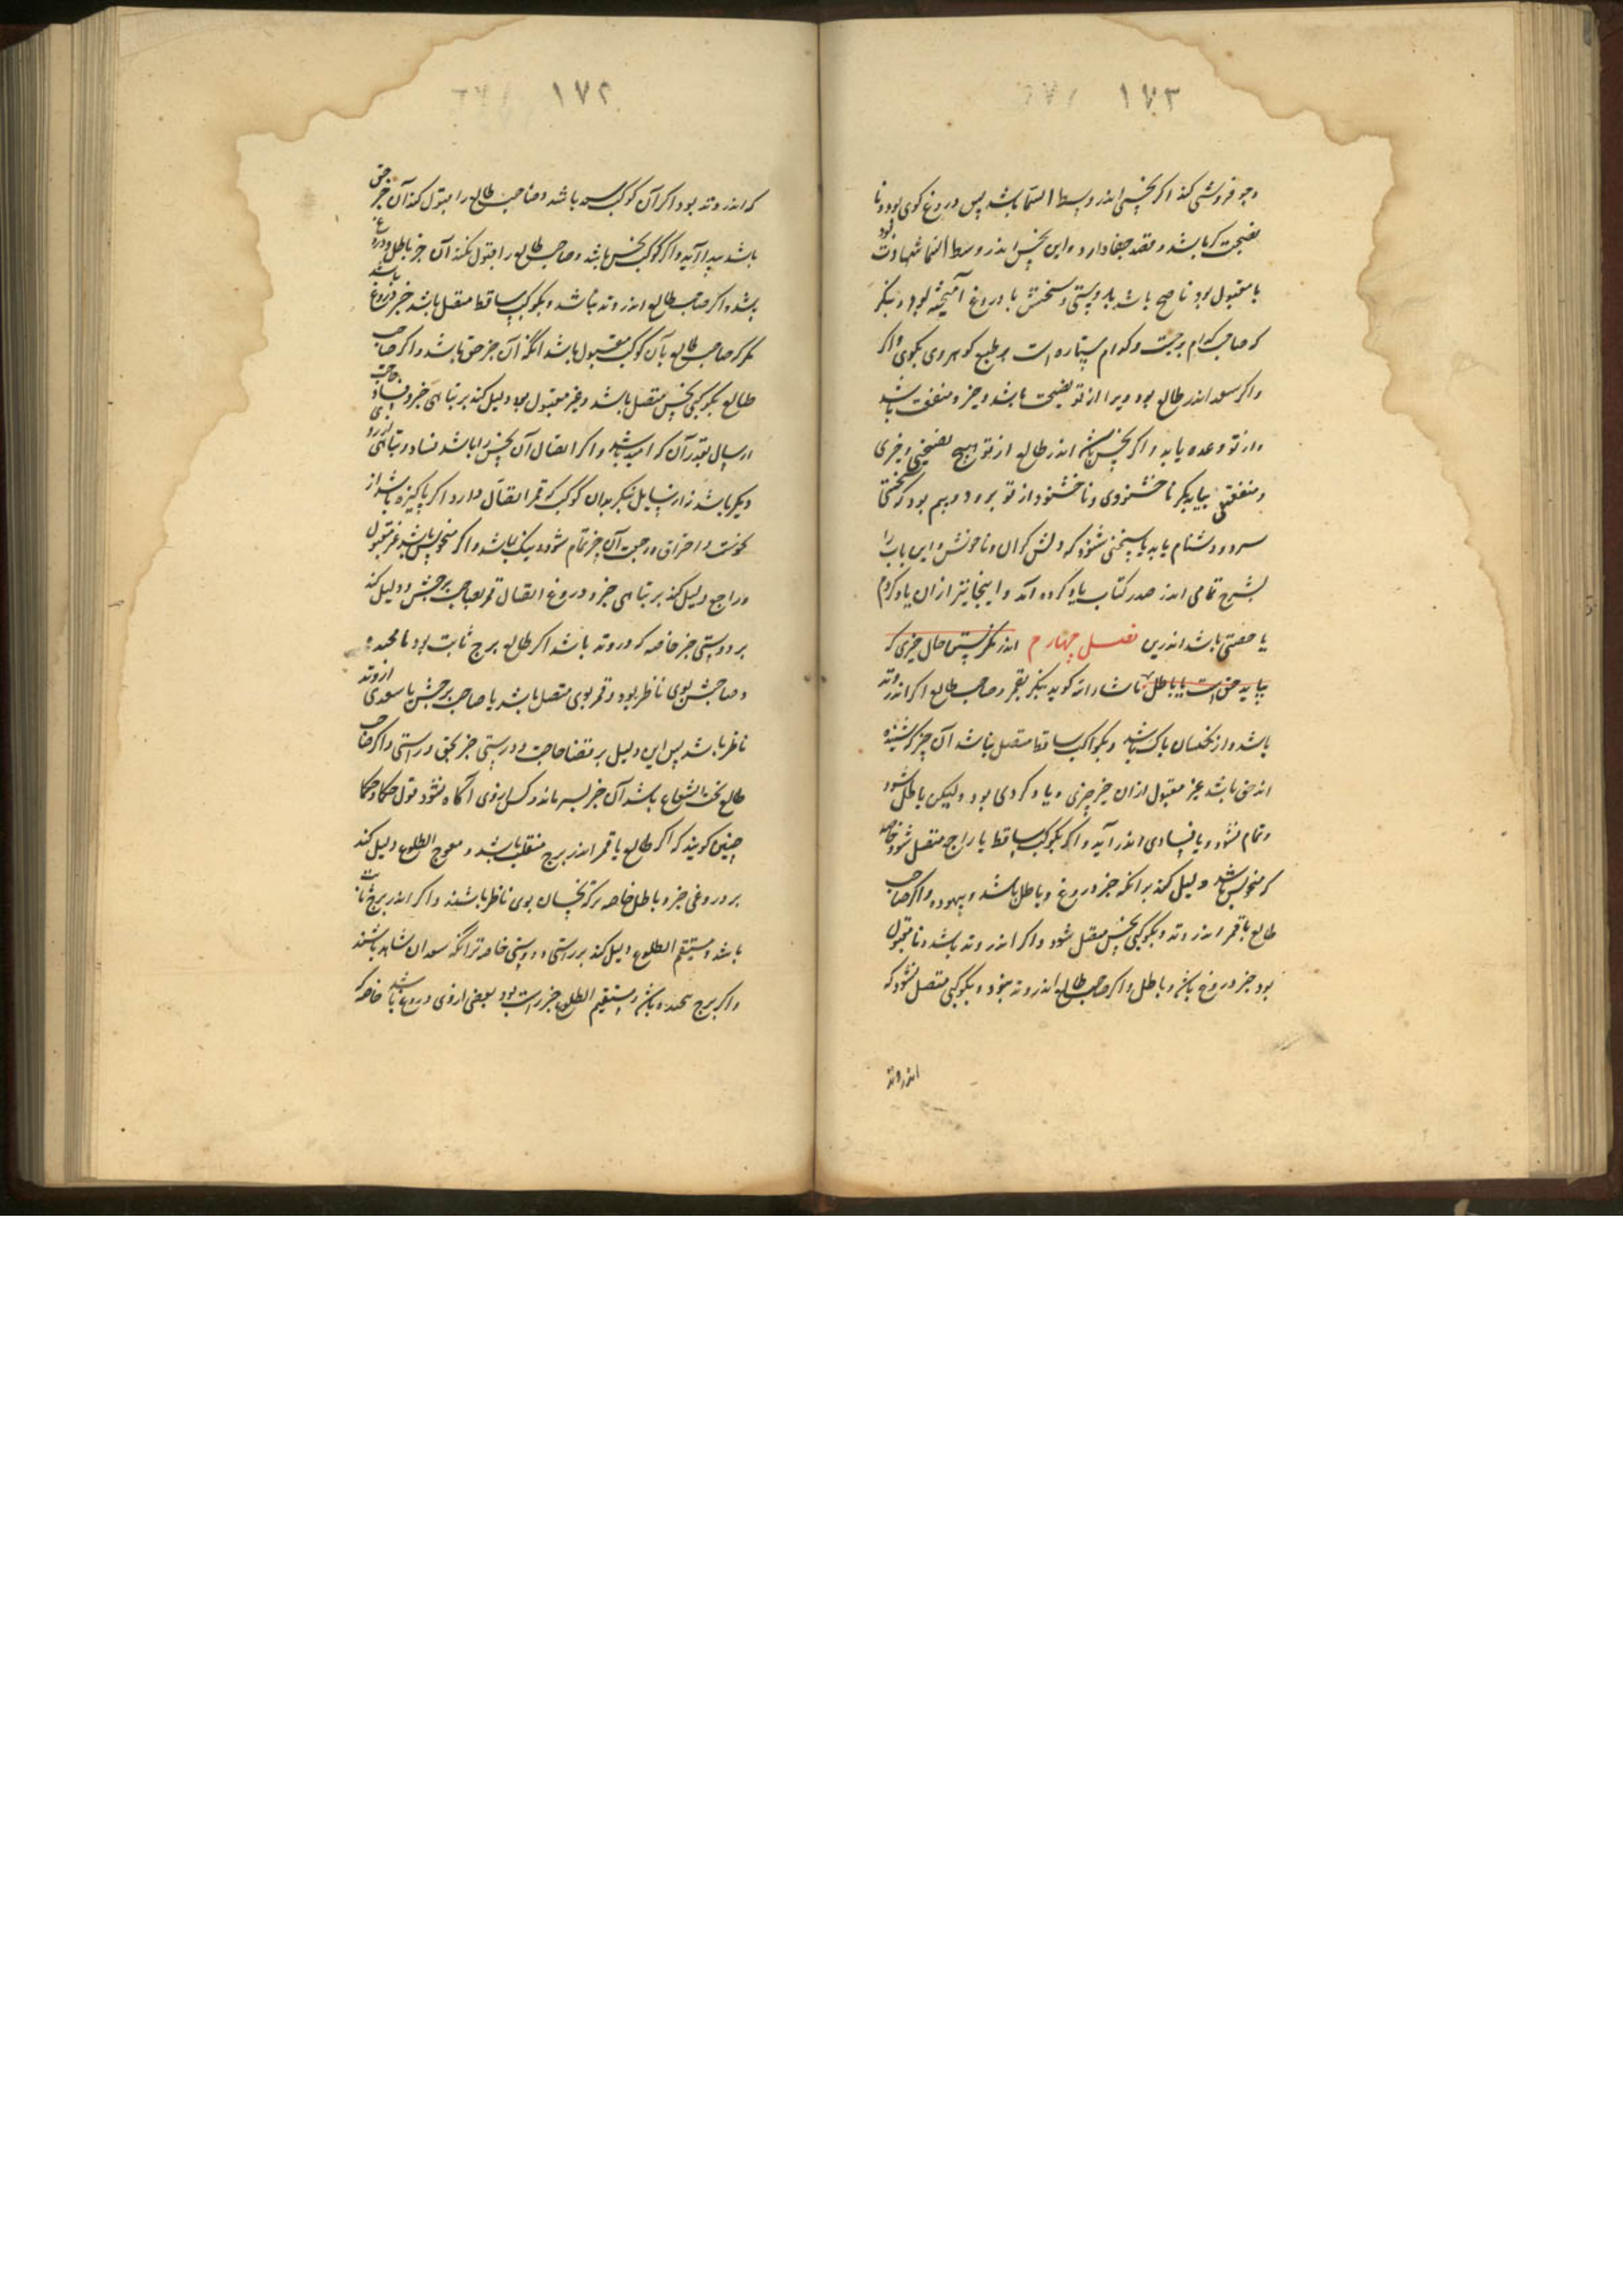 ۱۷۳
وجو فروشی کند اگر نحسی اندر وسط السما باشد پس دروغ کوی بود و نا
نصیحت کر باشد و قصد جفا دارد و این نحس اندر وسط السما شهادت بود
با مقبول بود ناصح باشد بدوستی و سخنش با دروغ آمیخته بود و بنگر
که صاحب کدام برجست و کدام ستاره است بر طبع کوهر وی بکوی و اکر
و اکر سعد اندر طالع بود ویرا از تو نصیحت باشد و خیر و منفعت باشد
و از تو وعده یابد و اکر نحس باشد اندر طالع از تو هیچ نصیحتی و خیری
و منفعتی نیابد مکر ناخشنودی و ناخشنود از تو برود و بیم بود که سختی
سرد و دشنام یابد یا سخنی شنود که دلش کران و ناخوش و این باب را
بشرح تمامی اندر صدر کتاب یاد کرده آمد و اینجا نیز از ان یاد کردم
یا صفتی باشد اندرین فصل چهارم اندر نکریستن حال خبری که
بیاید حق است یا باطل ماشاء الله کوید بنکر بقمر و صاحب طالع اکر اندر وتد
باشد و از نحسان پاک باشد و بکواکب ساقط متصل نباشد آن خبر که شنیده
اند حق باشد غیر مقبول از ان خبر چیزی و یا و کردی بود ولیکن باطل شود
و تمام نشود و یا فسادی اندر آید و اکر بکوکب ساقط یا راجع متصل شود خاصه
که منحوس باشد دلیل کند برانکه خبر دروغ و باطل باشد و بیهوده و اکر صاحب
طالع یا قمر اندر وتد و بکوکبی نحس متصل شود و اکر اندر وتد باشد و نا مقبول
بود خبر دروغ باشد و باطل و اکر صاحب طالع اندر وتد بود و بکوکبی متصل نشود که
اندر وتد
۱۷۲
که اندر وتد بود اکر آن کوکب سعد باشد و صاحب طالع را قبول کند آن خبر حق
باشد پیدا آید و اکر کوکب نحس باشد و صاحب طالع را قبول نکند آن خبر باطل و دروغ
باشد و اکر صاحب طالع اندر وتد نباشد و بکوکب ساقط متصل باشد خبر دروغ باشد
مکر که صاحب طالع بآن کوکب مقبول باشد انکه آن خبر حق باشد و اکر صاحب
طالع بکوکبی نحس متصل باشد و غیر مقبول بود دلیل کند بر تباهی خبر و فساد حاجت
ارسال بقدر آن که امید باشد و اکر اتصال آن نحس را باشد فساد و تباهی از روی
دیکر باشد نه از سایل بنکر بدان کوکب که قمر اتصال دارد اکر پاکیزه باشد از
نحوست و احتراق و رجعت آن خبر تمام شود و نیک باشد و اکر منحوس باشد غیر مقبول
و راجع دلیل کند بر تباهی خبر و دروغ اتصال قمر بصاحب برجش دلیل کند
بر درستی خبر خاصه که در وتد باشد اکر طالع برج ثابت بود یا مجسده
و صاحبش بوی ناظر بود و قمر بوی متصل باشد یا صاحب برجش یا سعدی از وتد
ناظر باشد پس این دلیل بر قضا حاجت و درستی خبر بحق و راستی و اکر صاحب
طالع تحت الشعاع باشد آن خبر بسر ماند و کس از وی آگاه نشود قول حکما و حکما
چنین کویند که اکر طالع یا قمر اندر برج منقلب باشد و معوج الطلوع دلیل کند
بر دروغی خبر و باطل خاصه که نحسان بوی ناظر باشند و اکر اندر برج ثابت
باشد و مستقیم الطلوع دلیل کند بر راستی و درستی خاصه تر انکه سعدان شاهد باشند
و اکر برج مجسده باشد و مستقیم الطلوع خبر راست بود بعضی از وی دروغ باشد خاصه که